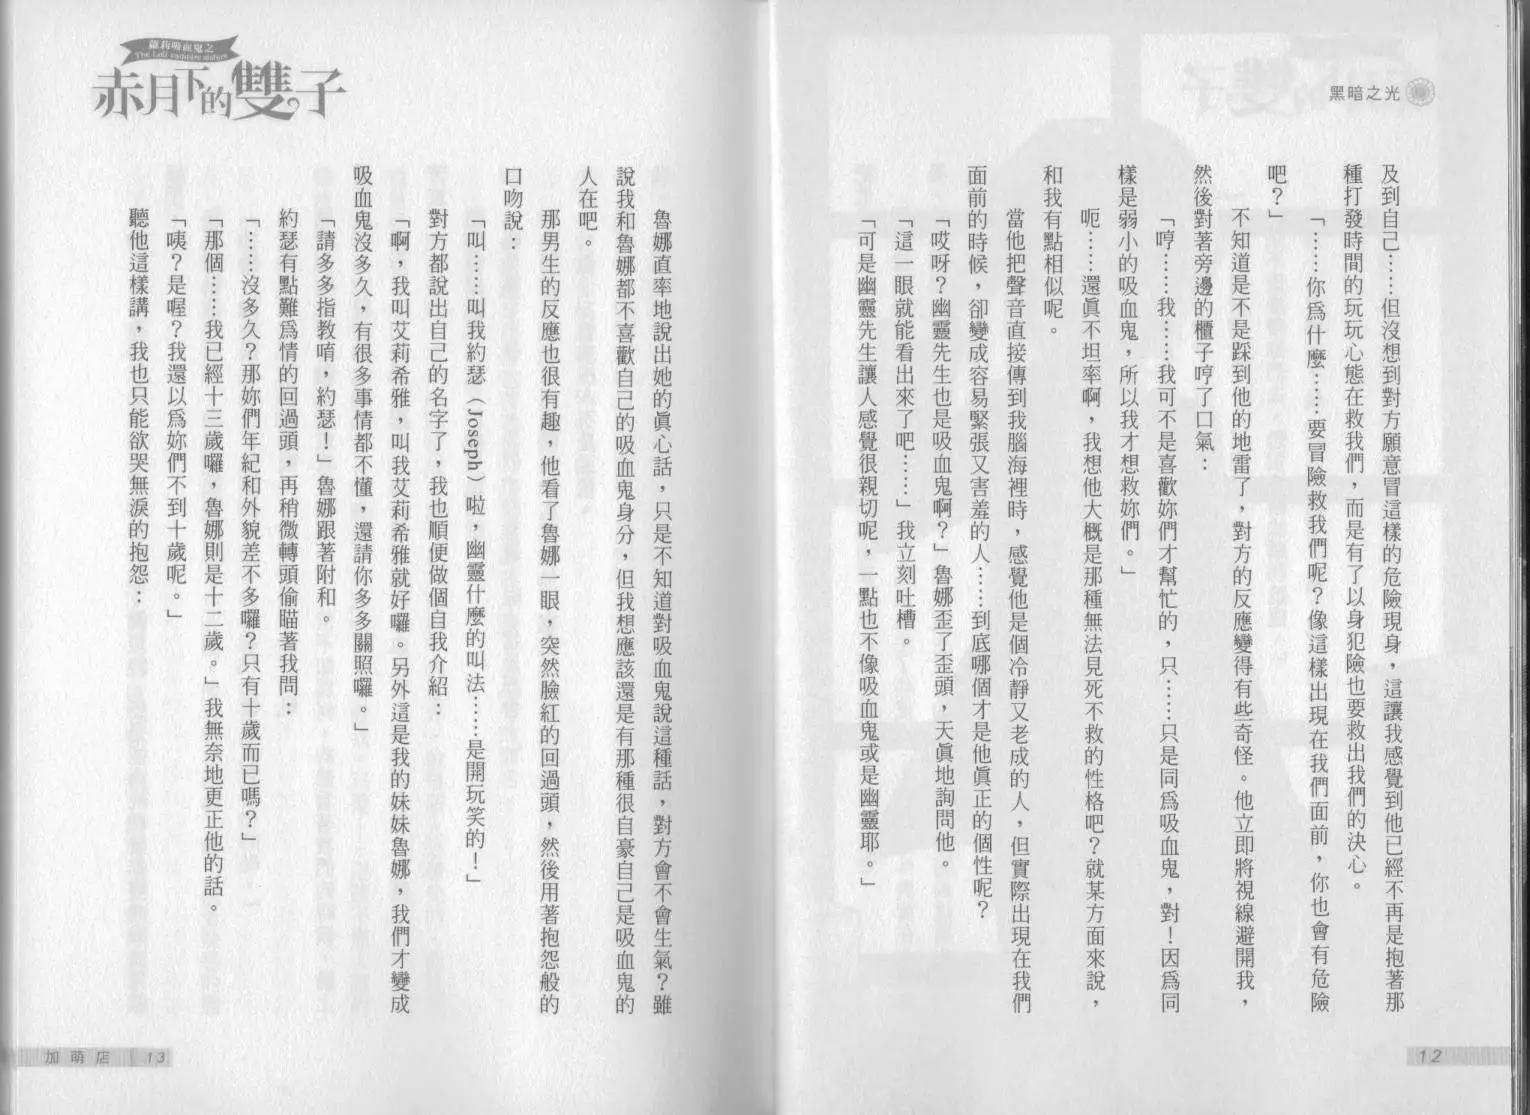 黑暗之光
及到自己……但沒想到對方願意冒這樣的危險現身，這讓我感覺到他已經不再是抱著那
種打發時間的玩玩心態在救我們，而是有了以身犯險也要救出我們的決心。
「……你為什麼……要冒險救我們呢？像這樣出現在我們面前，你也會有危險
吧？」
不知道是不是踩到他的地雷了，對方的反應變得有些奇怪。他立即將視線避開我，
然後對著旁邊的櫃子哼了口氣：
「哼……我……我可不是喜歡妳們才幫忙的，只……只是同為吸血鬼，對！因為同
樣是弱小的吸血鬼，所以我才想救妳們。」
呃……還真不坦率啊，我想他大概是那種無法見死不救的性格吧？就某方面來說，
和我有點相似呢。
當他把聲音直接傳到我腦海裡時，感覺他是個冷靜又老成的人，但實際出現在我們
面前的時候，卻變成容易緊張又害羞的人……到底哪個才是他真正的個性呢？
「哎呀？幽靈先生也是吸血鬼啊？」魯娜歪了歪頭，天真地詢問他。
「這一眼就能看出來了吧……」我立刻吐槽。
「可是幽靈先生讓人感覺很親切呢，一點也不像吸血鬼或是幽靈耶。」
12
蘿莉吸血鬼之
The Loli vampire sisters
赤月下的雙子
魯娜直率地說出她的真心話，只是不知道對吸血鬼說這種話，對方會不會生氣？雖
說我和魯娜都不喜歡自己的吸血鬼身分，但我想應該還是有那種很自豪自己是吸血鬼的
人在吧。
那男生的反應也很有趣，他看了魯娜一眼，突然臉紅的回過頭，然後用著抱怨般的
口吻說：
「叫……叫我約瑟（Joseph）啦，幽靈什麼的叫法……是開玩笑的！」
對方都說出自己的名字了，我也順便做個自我介紹：
「啊，我叫艾莉希雅，叫我艾莉希雅就好囉。另外這是我的妹妹魯娜，我們才變成
吸血鬼沒多久，有很多事情都不懂，還請你多多關照囉。」
「請多多指教唷，約瑟！」魯娜跟著附和。
約瑟有點難為情的回過頭，再稍微轉頭偷瞄著我問：
「……沒多久？那妳們年紀和外貌差不多囉？只有十歲而已嗎？」
「那個……我已經十三歲囉，魯娜則是十二歲。」我無奈地更正他的話。
「咦？是喔？我還以為妳們不到十歲呢。」
聽他這樣講，我也只能欲哭無淚的抱怨：
加萌店 13